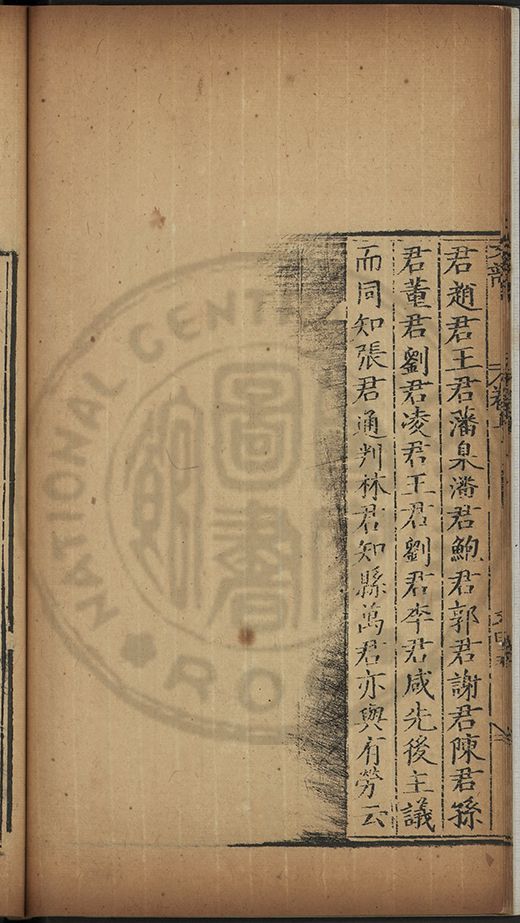 君趙君王君藩臬潘君鮑君郭君謝君陳君孫
君董君劉君凌君王君劉君李君咸先後主議
而同知張君通判林君知縣萬君亦與有勞云
NATIONAL CENTR
圖書